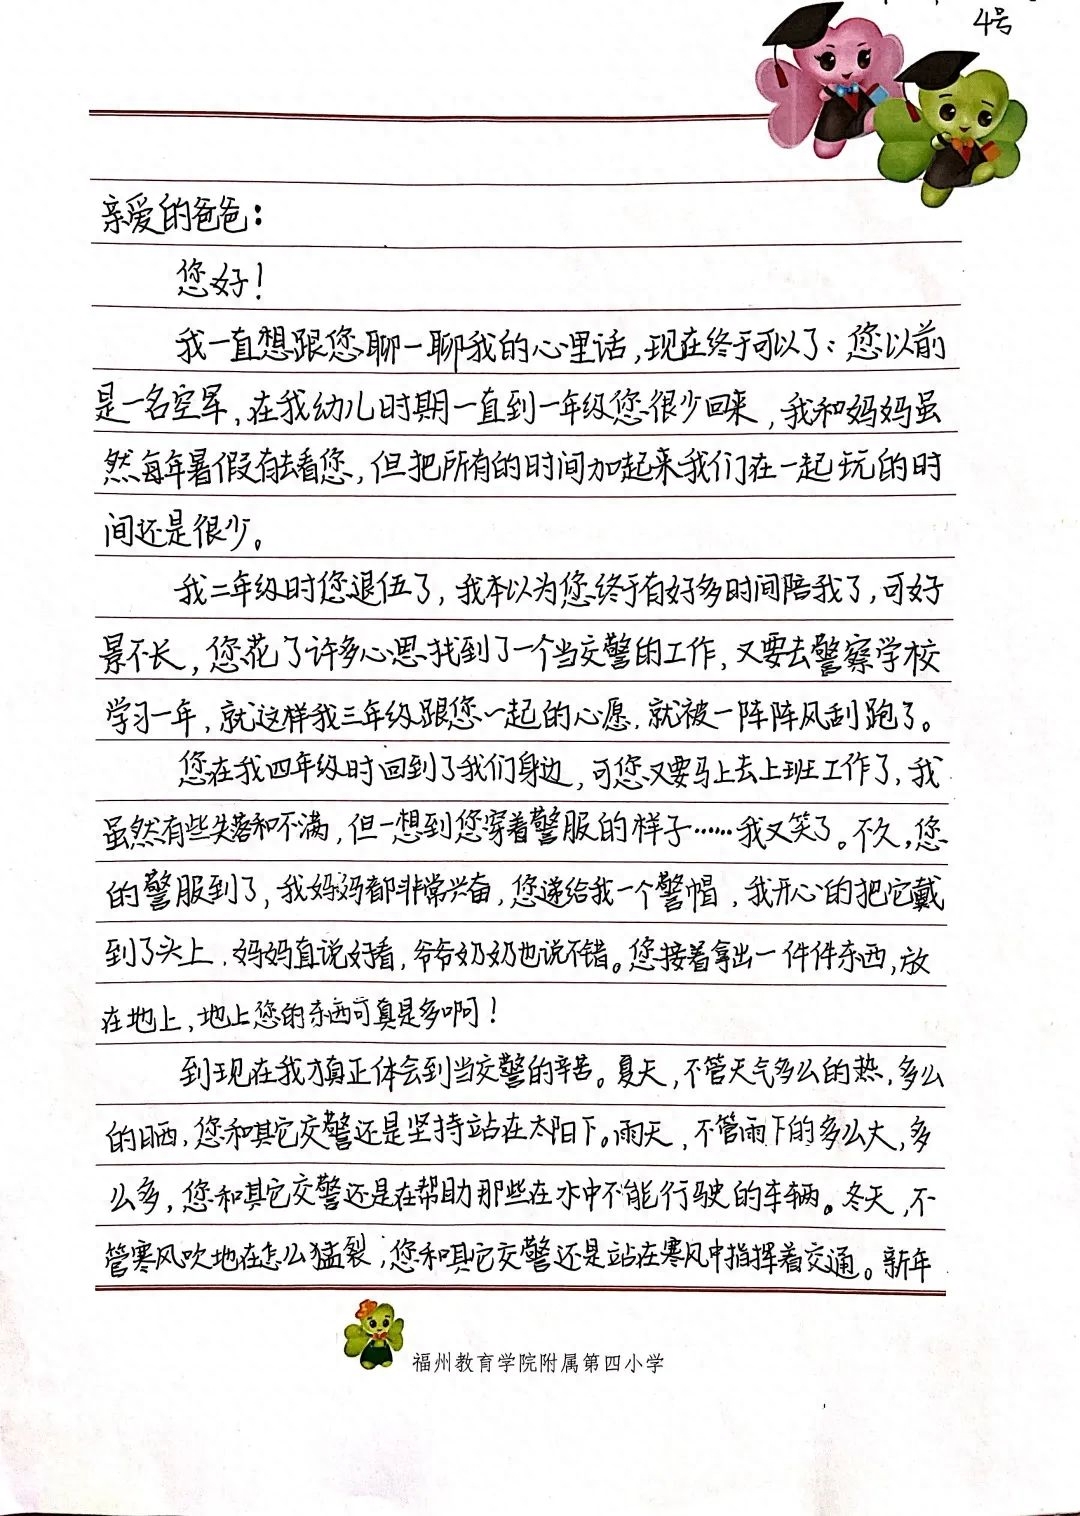 4号
亲爱的爸爸：
您好！
我一直想跟您聊一聊我的心里话，现在终于可以了：您以前
是一名空军，在我幼儿时期一直到一年级您很少回来，我和妈妈虽
然每年暑假有去看您，但把所有的时间加起来我们在一起玩的时
间还是很少。
我二年级时您退伍了，我本以为您终于有好多时间陪我了，可好
景不长，您花了许多心思找到了一个当交警的工作，又要去警察学校
学习一年，就这样我三年级跟您一起的心愿，就被一阵阵风刮跑了。
您在我四年级时回到了我们身边，可您又要马上去上班工作了，我
虽然有些失落和不满，但一想到您穿着警服的样子……我又笑了。不久，您
的警服到了，我妈妈都非常兴奋，您递给我一个警帽，我开心的把它戴
到了头上，妈妈直说好看，爷爷奶奶也说不错。您接着拿出一件件东西，放
在地上，地上您的东西可真是多啊！
到现在我才真正体会到当交警的辛苦。夏天，不管天气多么的热，多么
的晒，您和其它交警还是坚持站在太阳下。雨天，不管雨下的多么大，多
么多，您和其它交警还是在帮助那些在水中不能行驶的车辆。冬天，不
管寒风吹地在怎么猛裂，您和其它交警还是站在寒风中指挥着交通。新年
福州教育学院附属第四小学